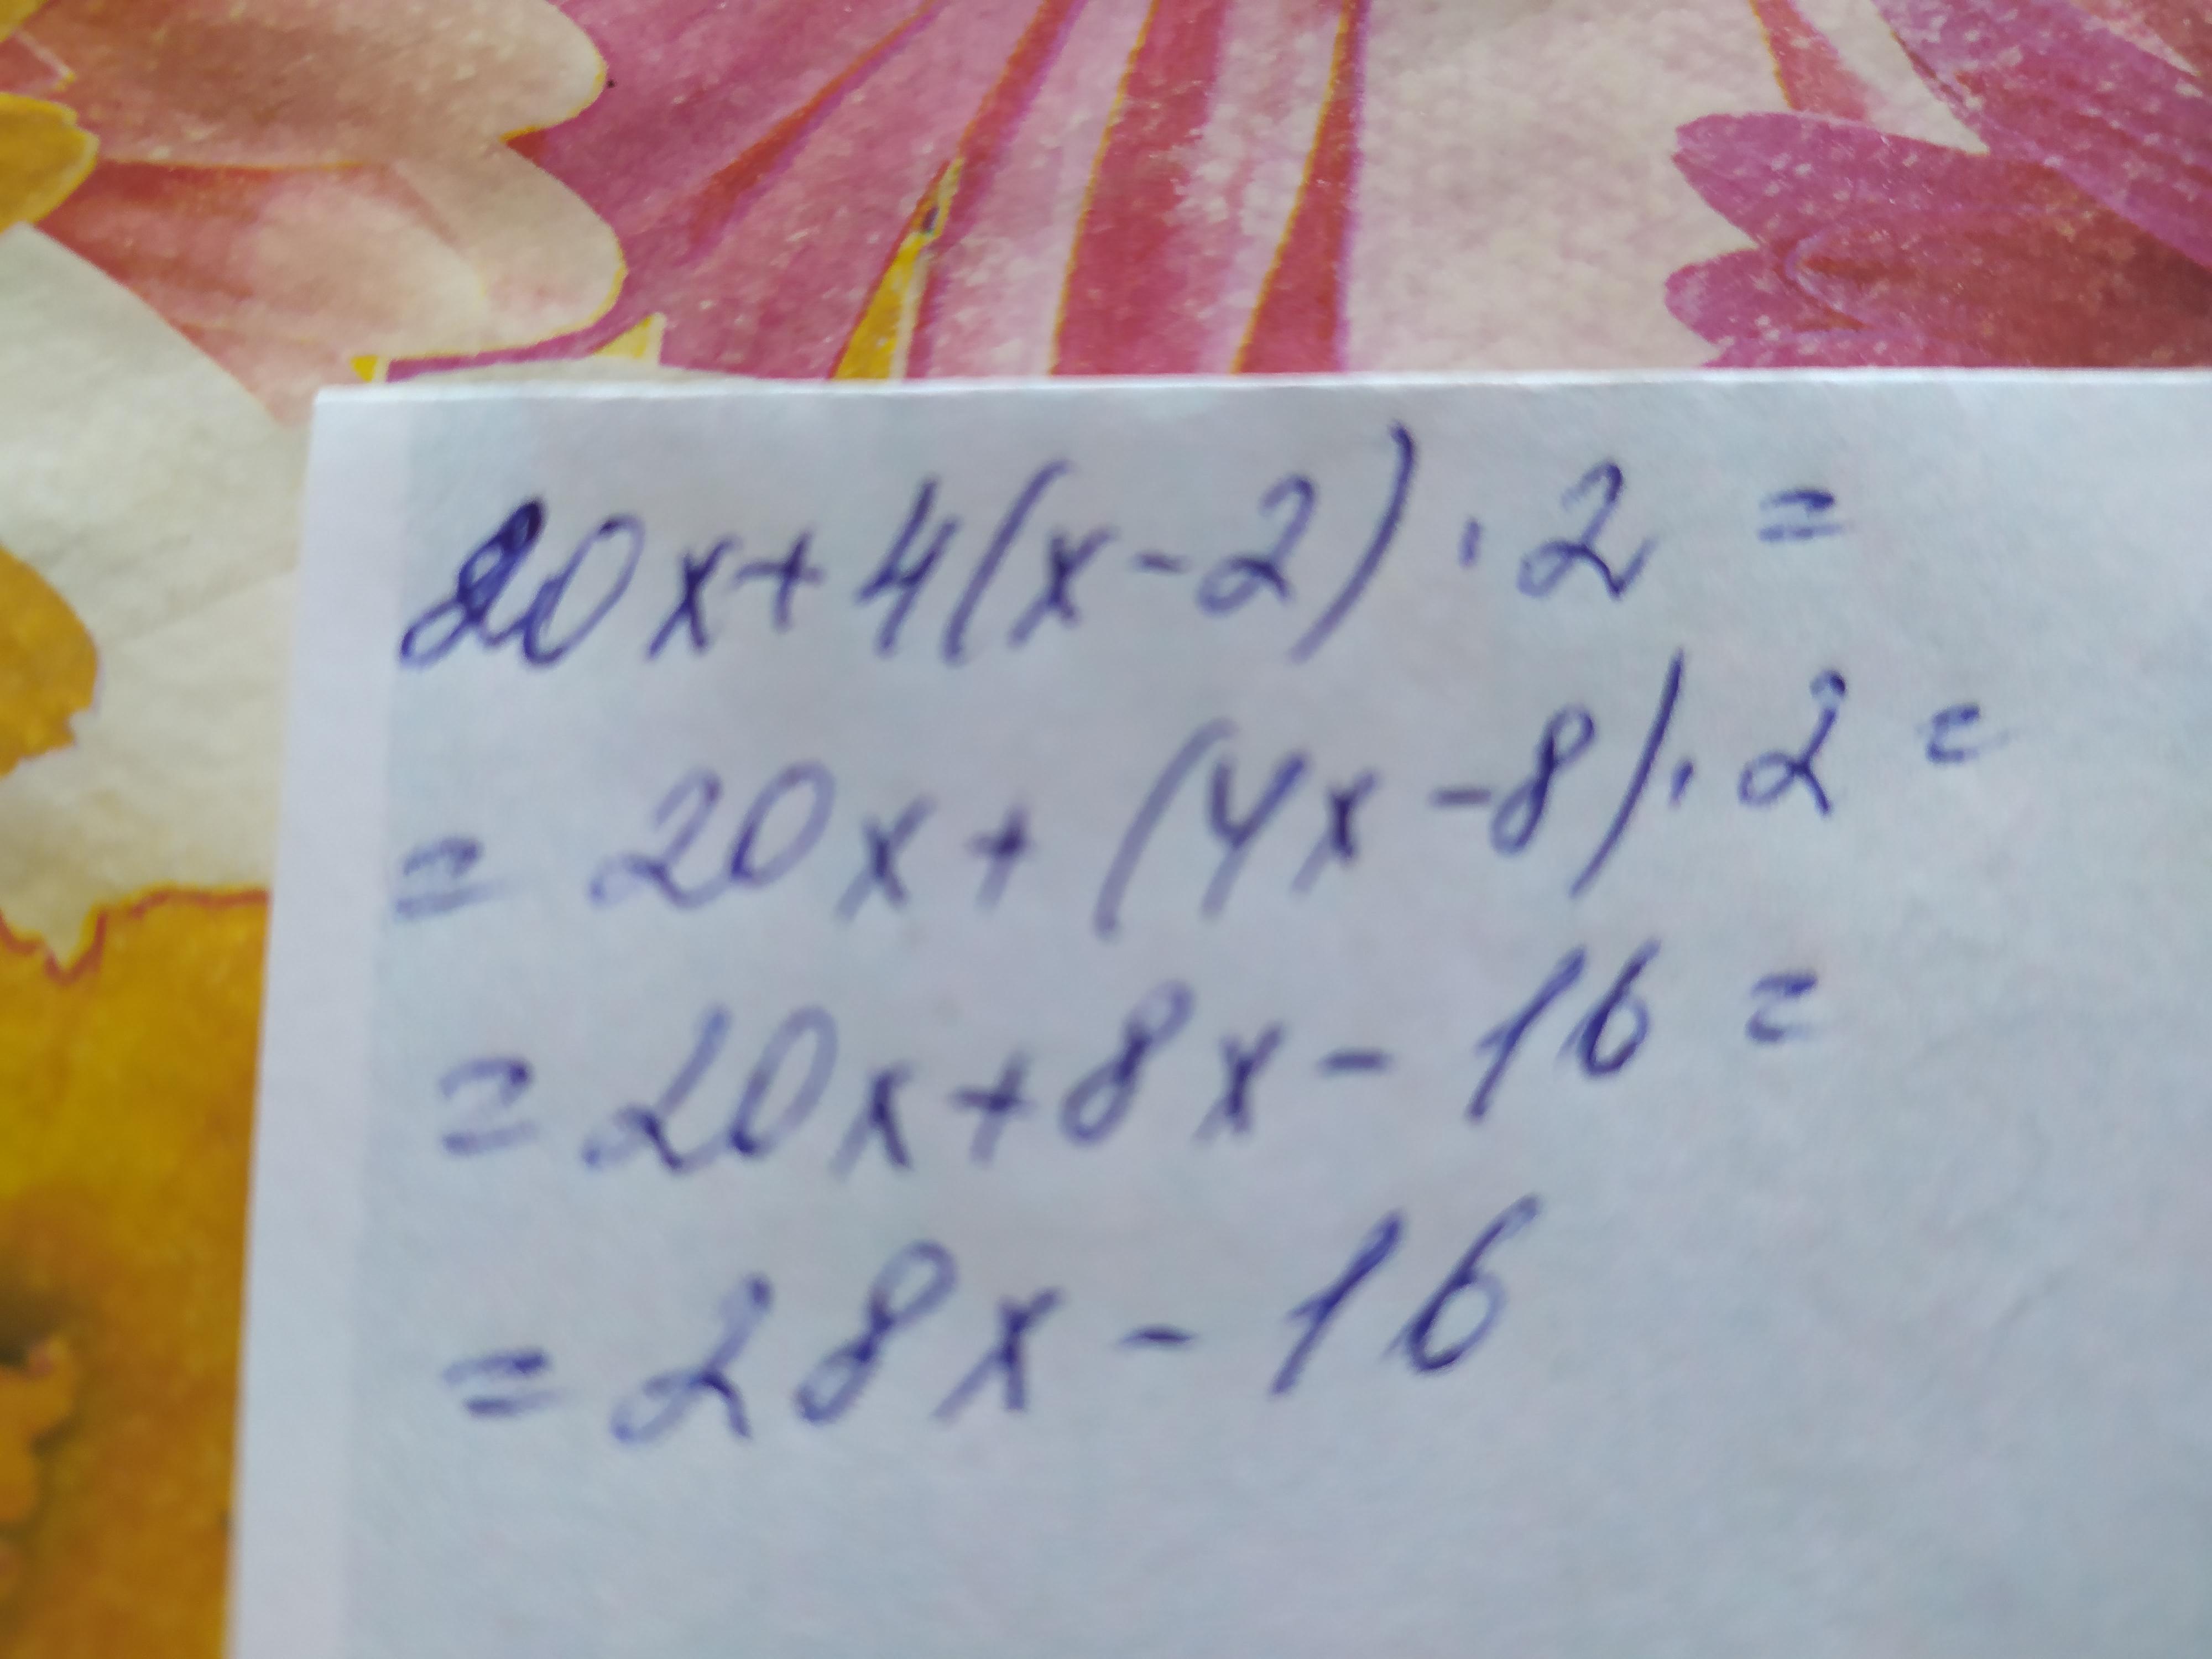 20x+4(x-2)·2=
=20x+(4x-8)·2=
=20x+8x-16=
=28x-16